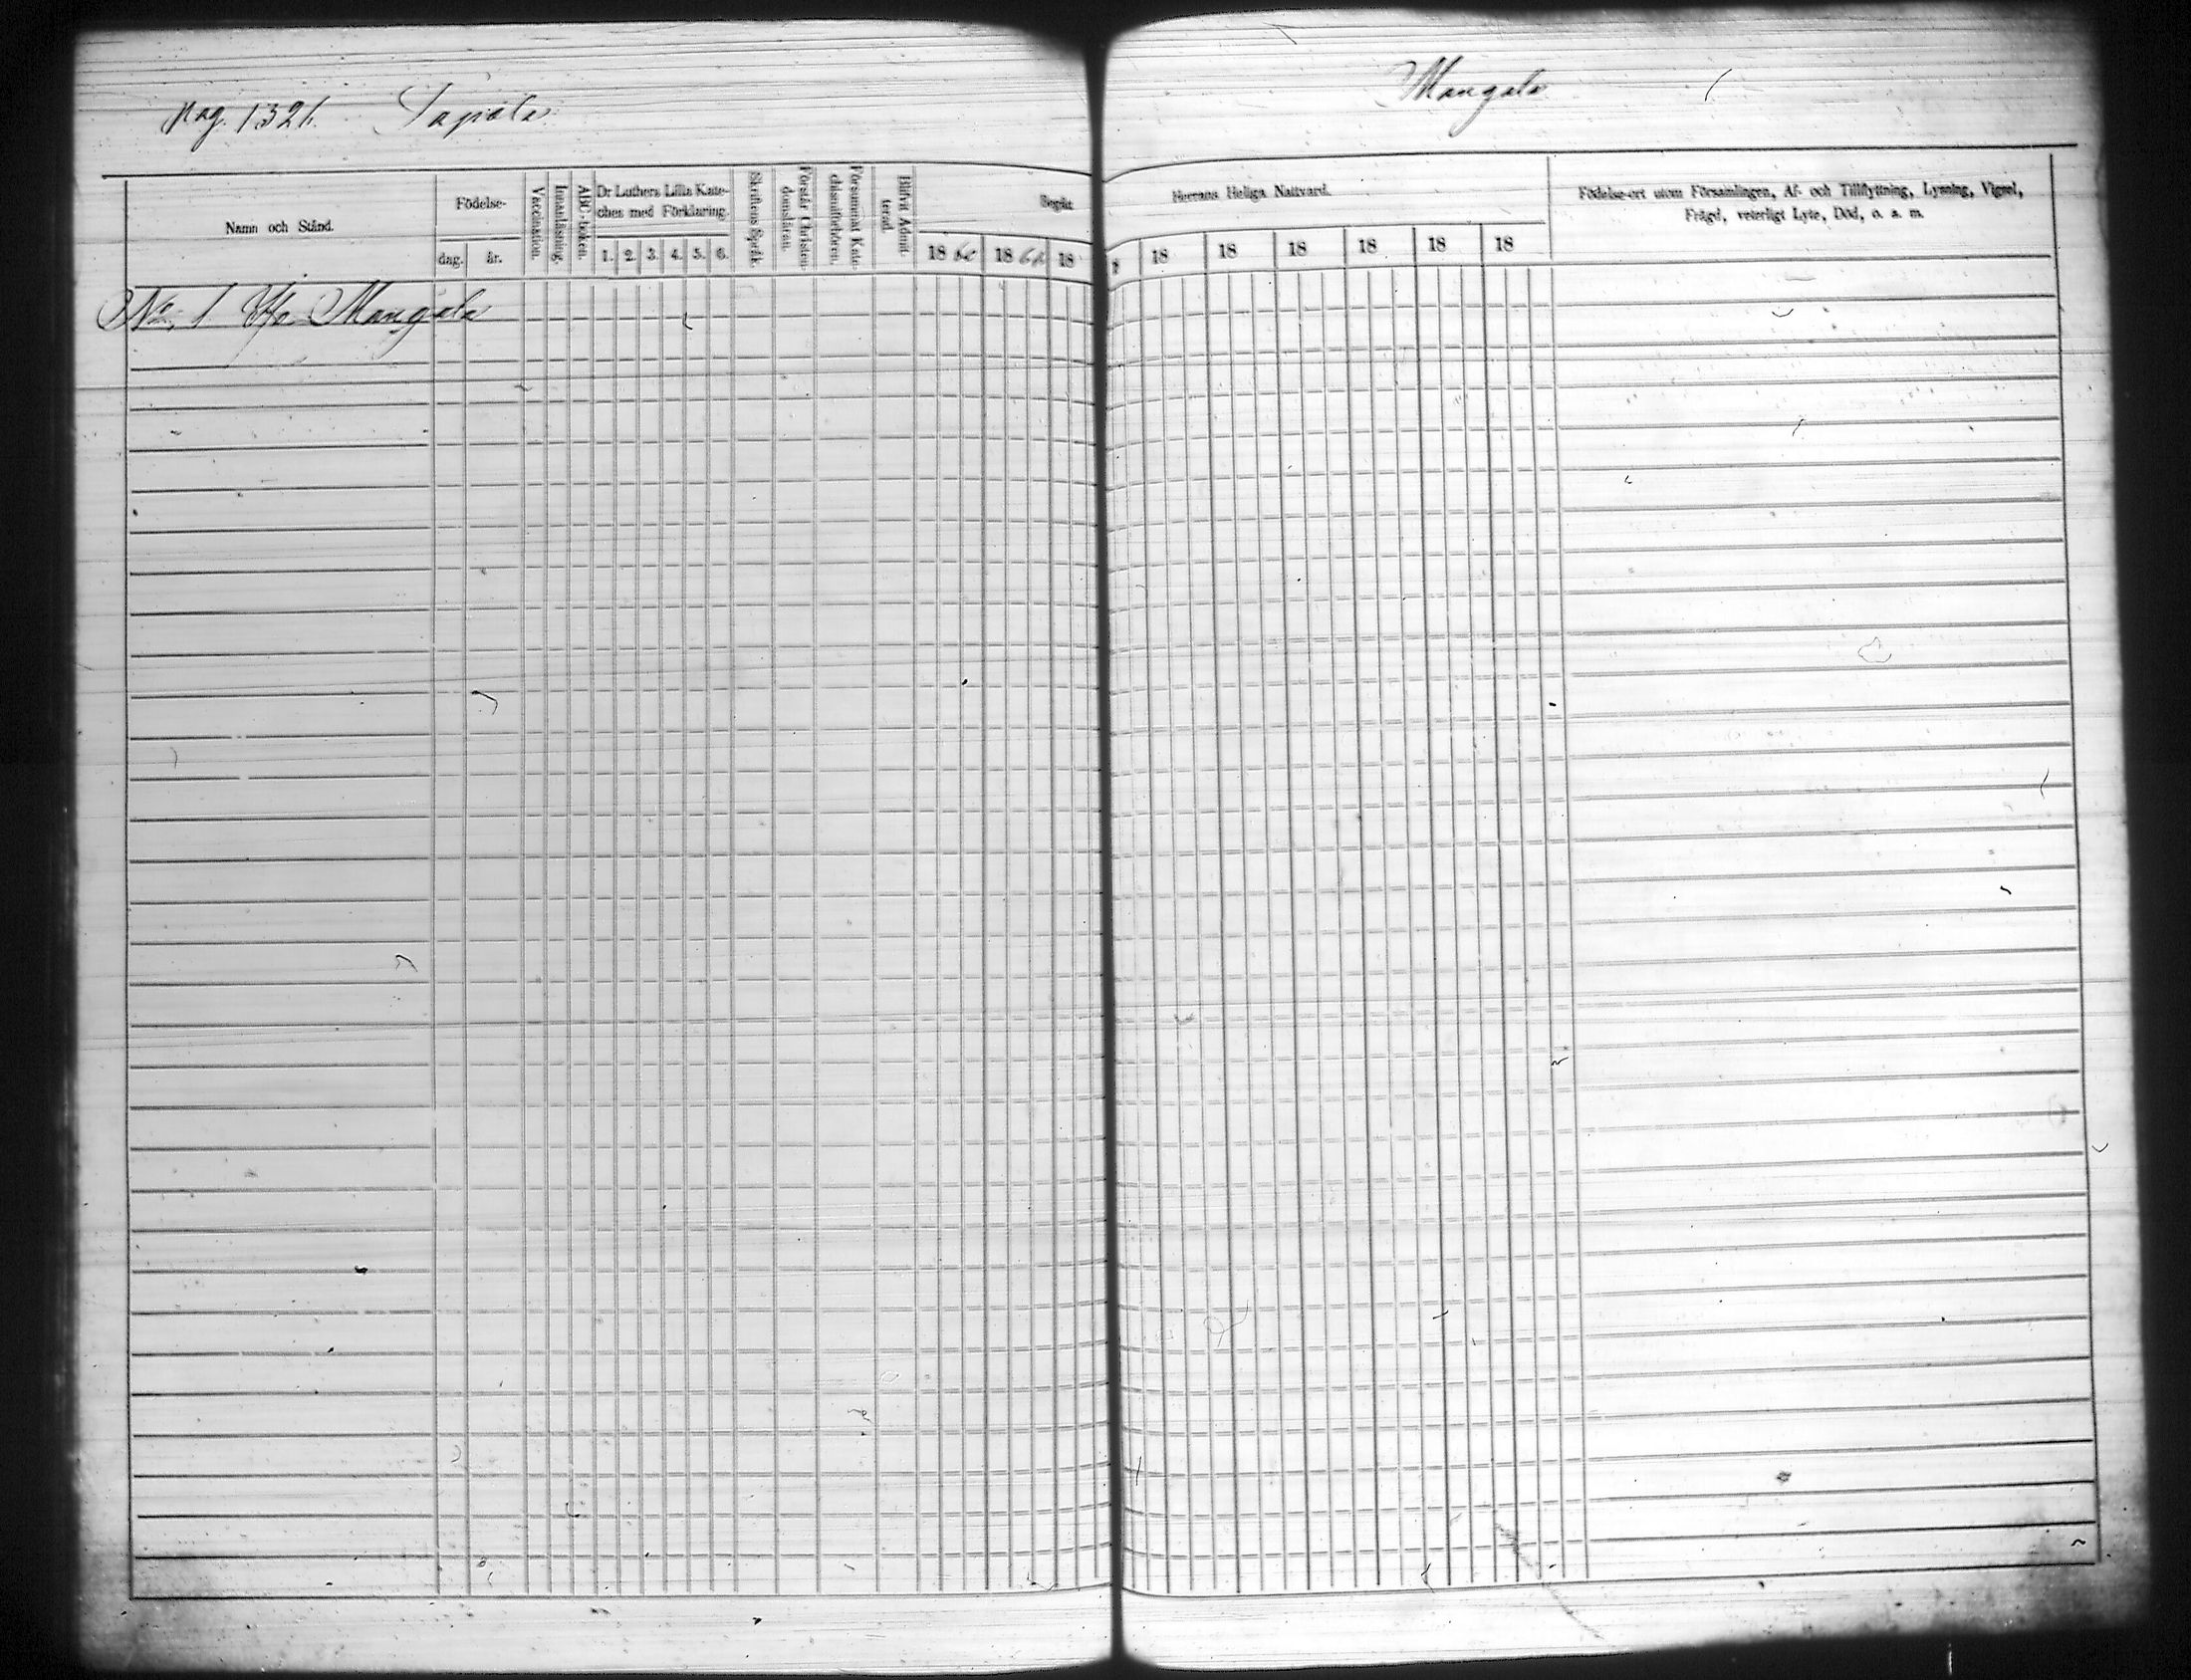 pag. 1321. Tapiola
Mangala
Namn och Stånd.
Födelse-
dag.
år.
Vaccination.
Innanläsning.
ABC-boken.
Dr Luthers Lilla Kate-
ches med Förklaring.
1. 2. 3. 4. 5. 6.
Skriftens Språk.
Förstår Christen-
domsläran.
Försummat Kate-
chismiförhören.
Blifvit Admit-
terad.
Begått
Herrans Heliga Nattvard.
18 60 18 61 18
18 18 18 18 18 18
Födelse-ort utom Församlingen, Af- och Tillflyttning, Lysning, Vigsel,
Frägd, veterligt Lyte, Död, o. a. m.
No. 1 Mangala